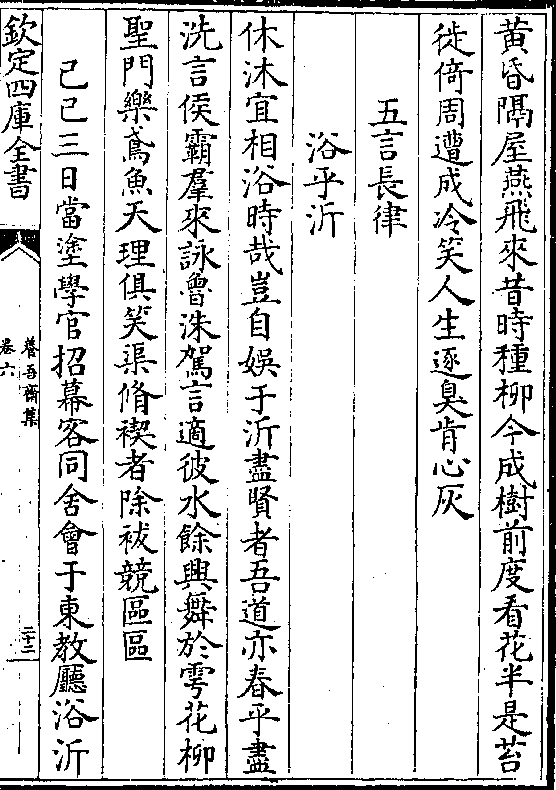 黄昏隔屋燕飛來昔時種柳今成樹前度看花半是苔
徙倚周遭成冷笑人生逐臭肯心灰
五言長律
浴乎沂
休沐宜相浴時哉豈自娛于沂盡賢者吾道亦春乎盡
洗言侯霸羣來詠魯洙駕言適彼水餘興舞於雩花柳
聖門樂鳶魚天理俱笑渠脩禊者除祓競區區
己巳三日當塗學官招幕客同舍會于東教廳浴沂
欽定四庫全書
養吾齋集
卷六
二十二